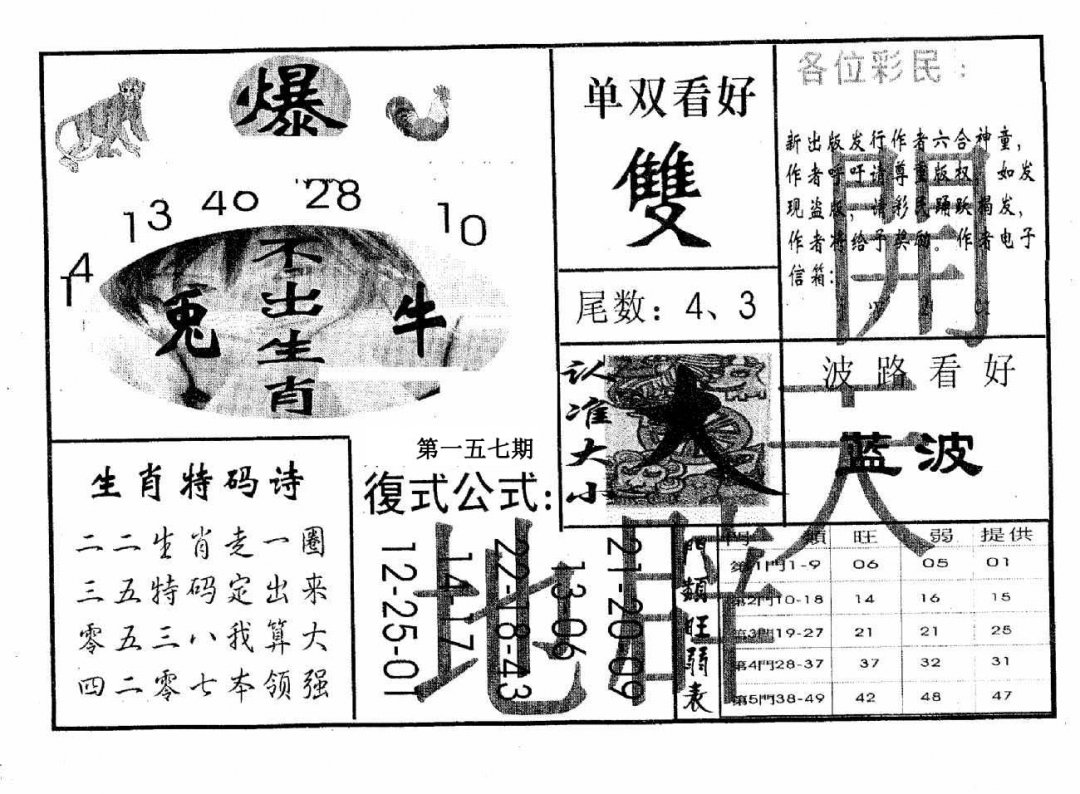 爆
14
13
48
28
10
不出生肖
兎
牛
单双看好
雙
尾数：4、3
各位彩民：
新出版发行作者六合神童，
作者呼吁请尊重版权，如发
现盗版，请彩民踊跃揭发，
作者将给予奖励。作者电子
信箱：
開
认准大小
大
波路看好
蓝波
天
生肖特码诗
二二生肖走一圈
三五特码定出来
零五三八我算大
四二零七本领强
第一五七期
復式公式：
12-25-01
14-17
22-18-43
13-06
21-20-09
地
門類旺弱表
門 類 旺 弱 提供
第1門1-9 06 05 01
第2門10-18 14 16 15
第3門19-27 21 21 25
第4門28-37 37 32 31
第5門38-49 42 48 47